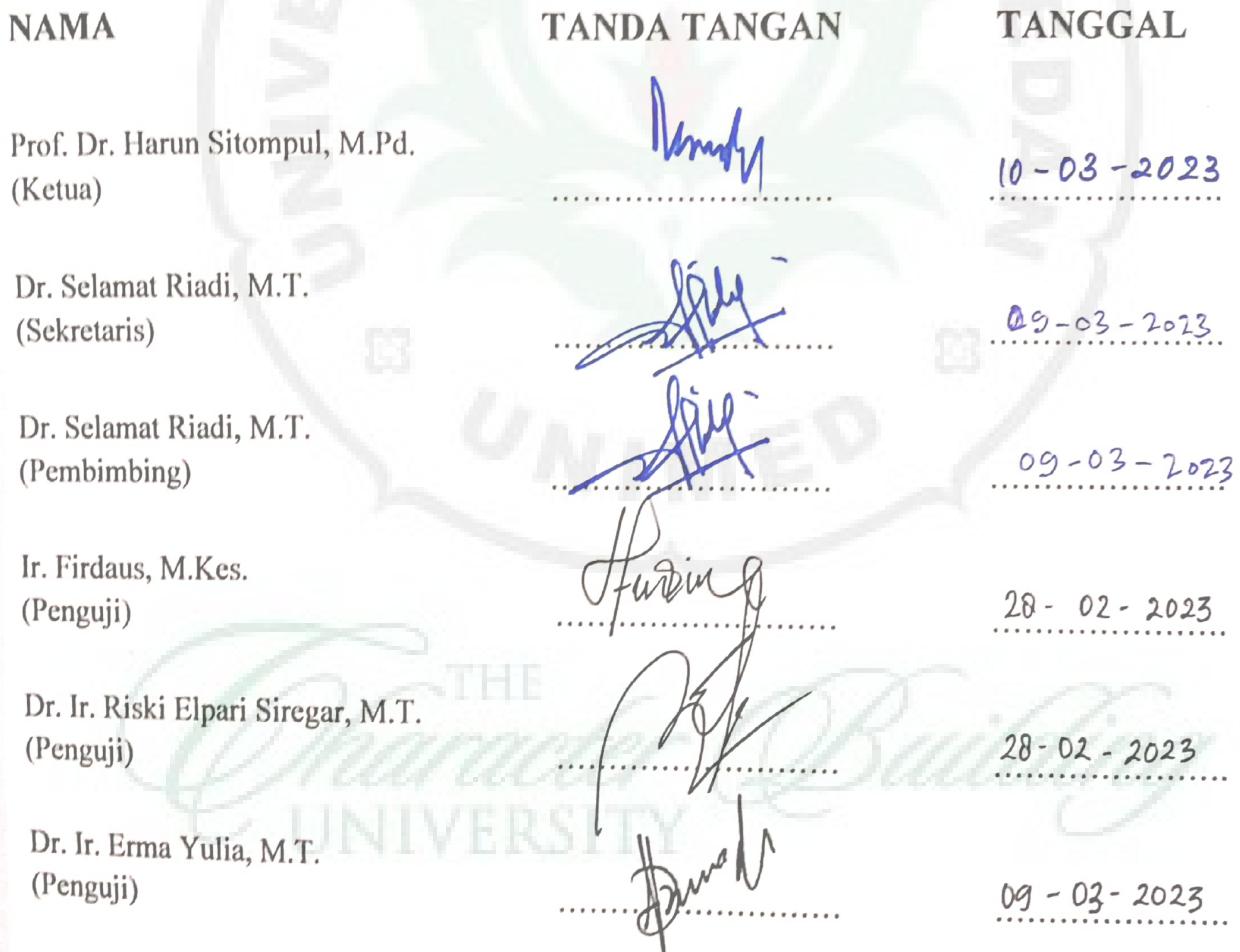 NAMA TANDA TANGAN TANGGAL
Prof. Dr. Harun Sitompul, M.Pd.
(Ketua) 10-03-2023
Dr. Selamat Riadi, M.T.
(Sekretaris) 09-03-2023
Dr. Selamat Riadi, M.T.
(Pembimbing) 09-03-2023
Ir. Firdaus, M.Kes.
(Penguji) 28-02-2023
Dr. Ir. Riski Elpari Siregar, M.T.
(Penguji) 28-02-2023
Dr. Ir. Erma Yulia, M.T.
(Penguji) 09-03-2023
UNIMED
THE
Character Building
UNIVERSITY